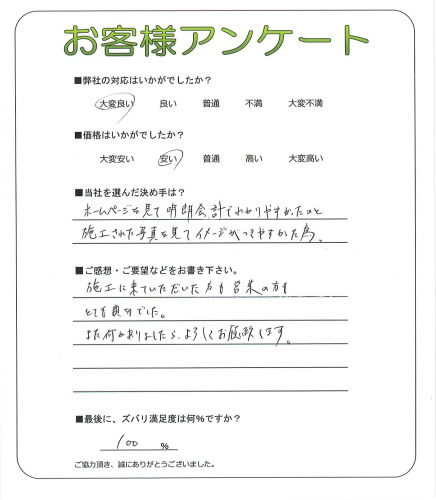 お客様アンケート
■弊社の対応はいかがでしたか？
大変良い 良い 普通 不満 大変不満
■価格はいかがでしたか？
大変安い 安い 普通 高い 大変高い
■当社を選んだ決め手は？
ホームページを見て明朗会計でわかりやすかったのと
施工された写真を見てイメージがつきやすかった為。
■ご感想・ご要望などをお書き下さい。
施工に来ていただいた方も営業の方も
とても良かったでした。
また何かありましたら、よろしくお願い致します。
■最後に、ズバリ満足度は何％ですか？
100 ％
ご協力頂き、誠にありがとうございました。